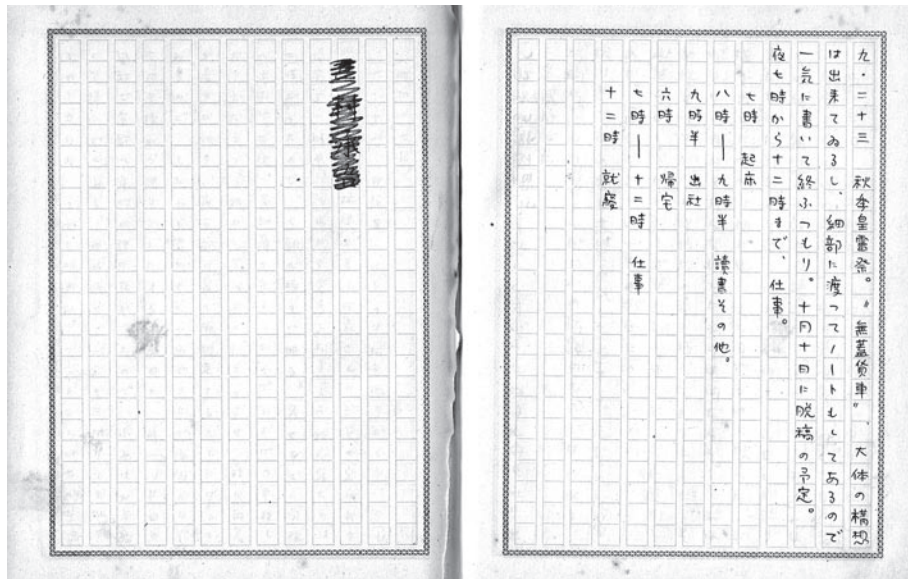 九・二十三 秋季皇霊祭。“無蓋貨車”、大体の構想
は出来てゐるし、細部に渡ってノートもしてあるので
一気に書いて終ふつもり。十月十日に脱稿の予定。
夜七時から十二時まで、仕事。
七時 起床
八時―九時半 讀書その他。
九時半 出社
六時 帰宅
七時―十二時 仕事
十二時 就寢